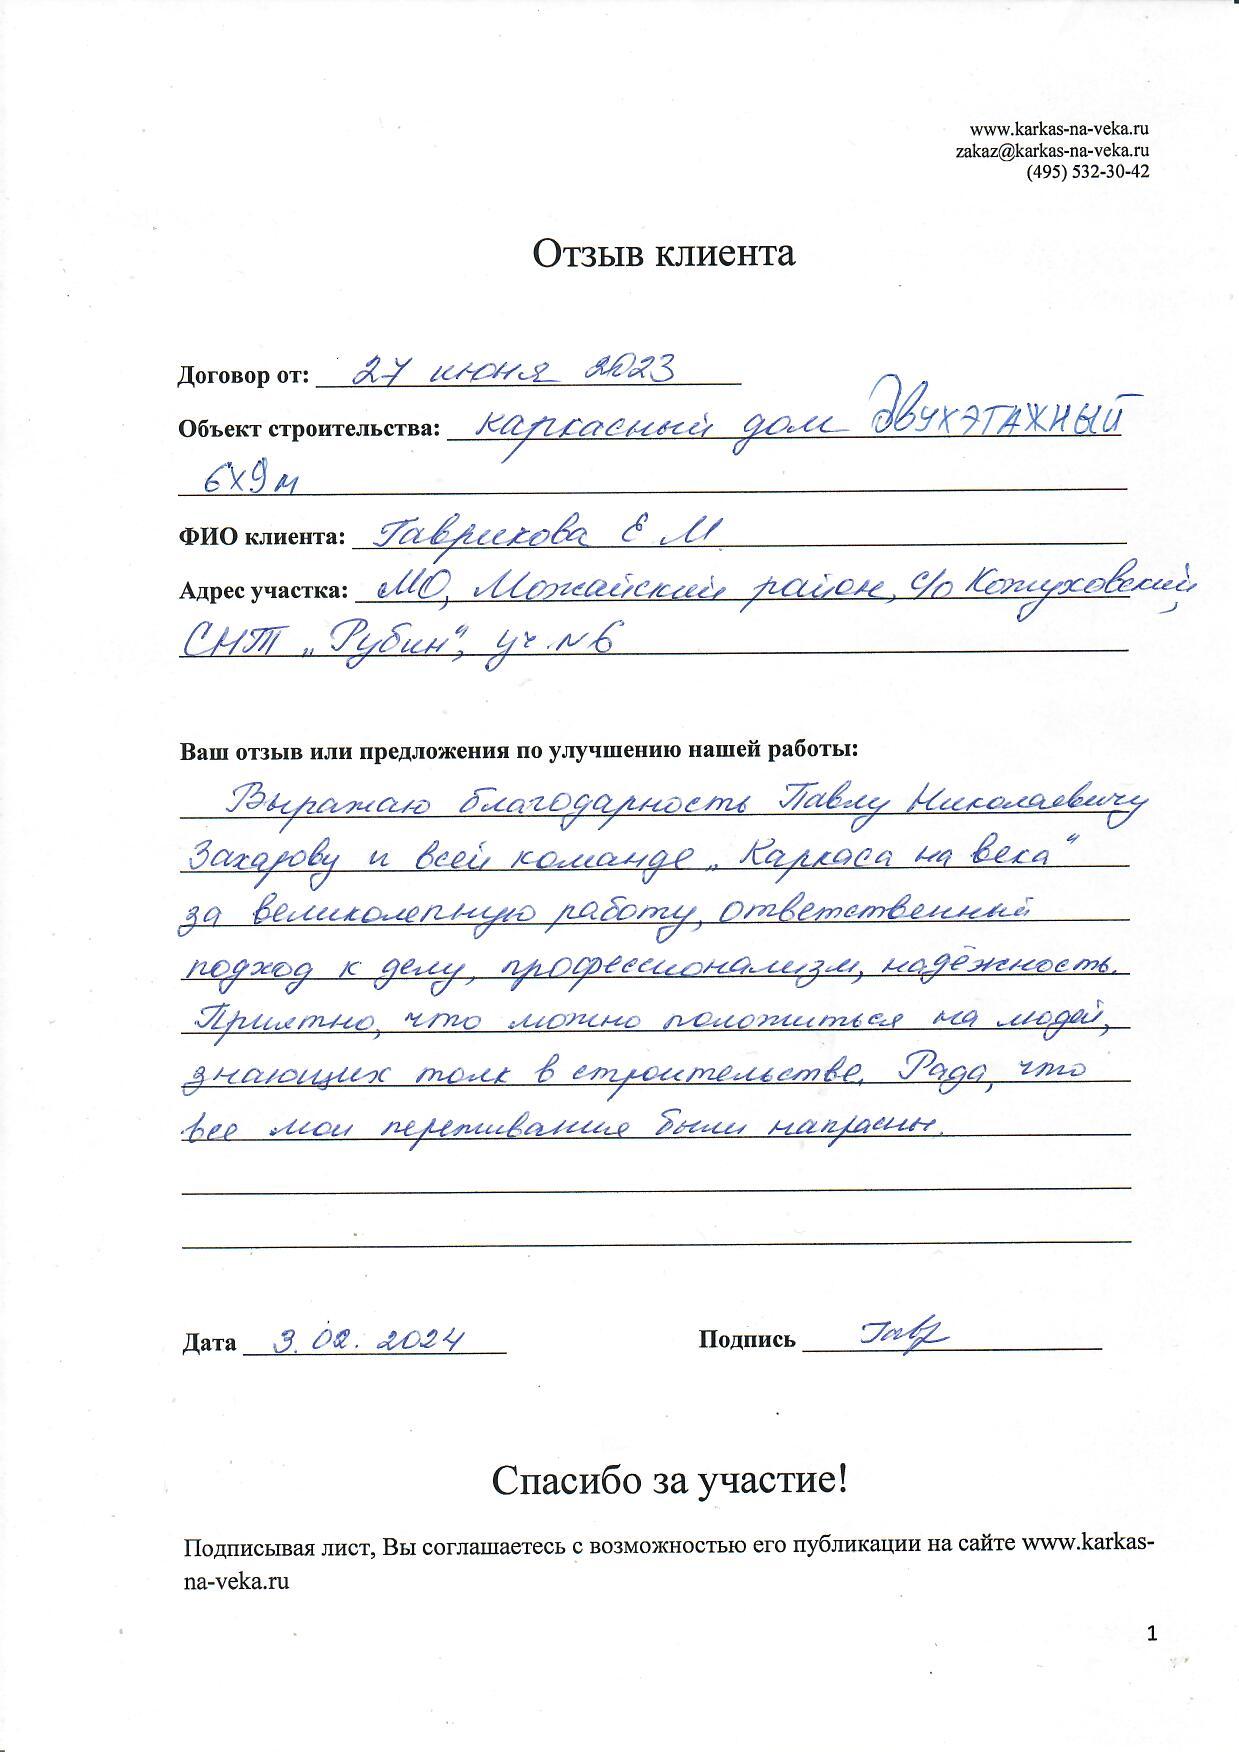 www.karkas-na-veka.ru
zakaz@karkas-na-veka.ru
(495) 532-30-42
Отзыв клиента
Договор от: 27 июня 2023
Объект строительства: каркасный дом ДВУХЭТАЖНЫЙ
6х9 м
ФИО клиента: Гаврикова Е М
Адрес участка: МО, Можайский район, с/о Кожуховский,
СНТ „Рубин“, уч. №6
Ваш отзыв или предложения по улучшению нашей работы:
Выражаю благодарность Павлу Николаевичу
Захарову и всей команде „Каркаса на века“
за великолепную работу, ответственный
подход к делу, профессионализм, надёжность.
Приятно, что можно положиться на людей,
знающих толк в строительстве. Рада, что
все мои переживания были напрасны.
Дата 3.02.2024 Подпись Гавр
Спасибо за участие!
Подписывая лист, Вы соглашаетесь с возможностью его публикации на сайте www.karkas-
na-veka.ru
1